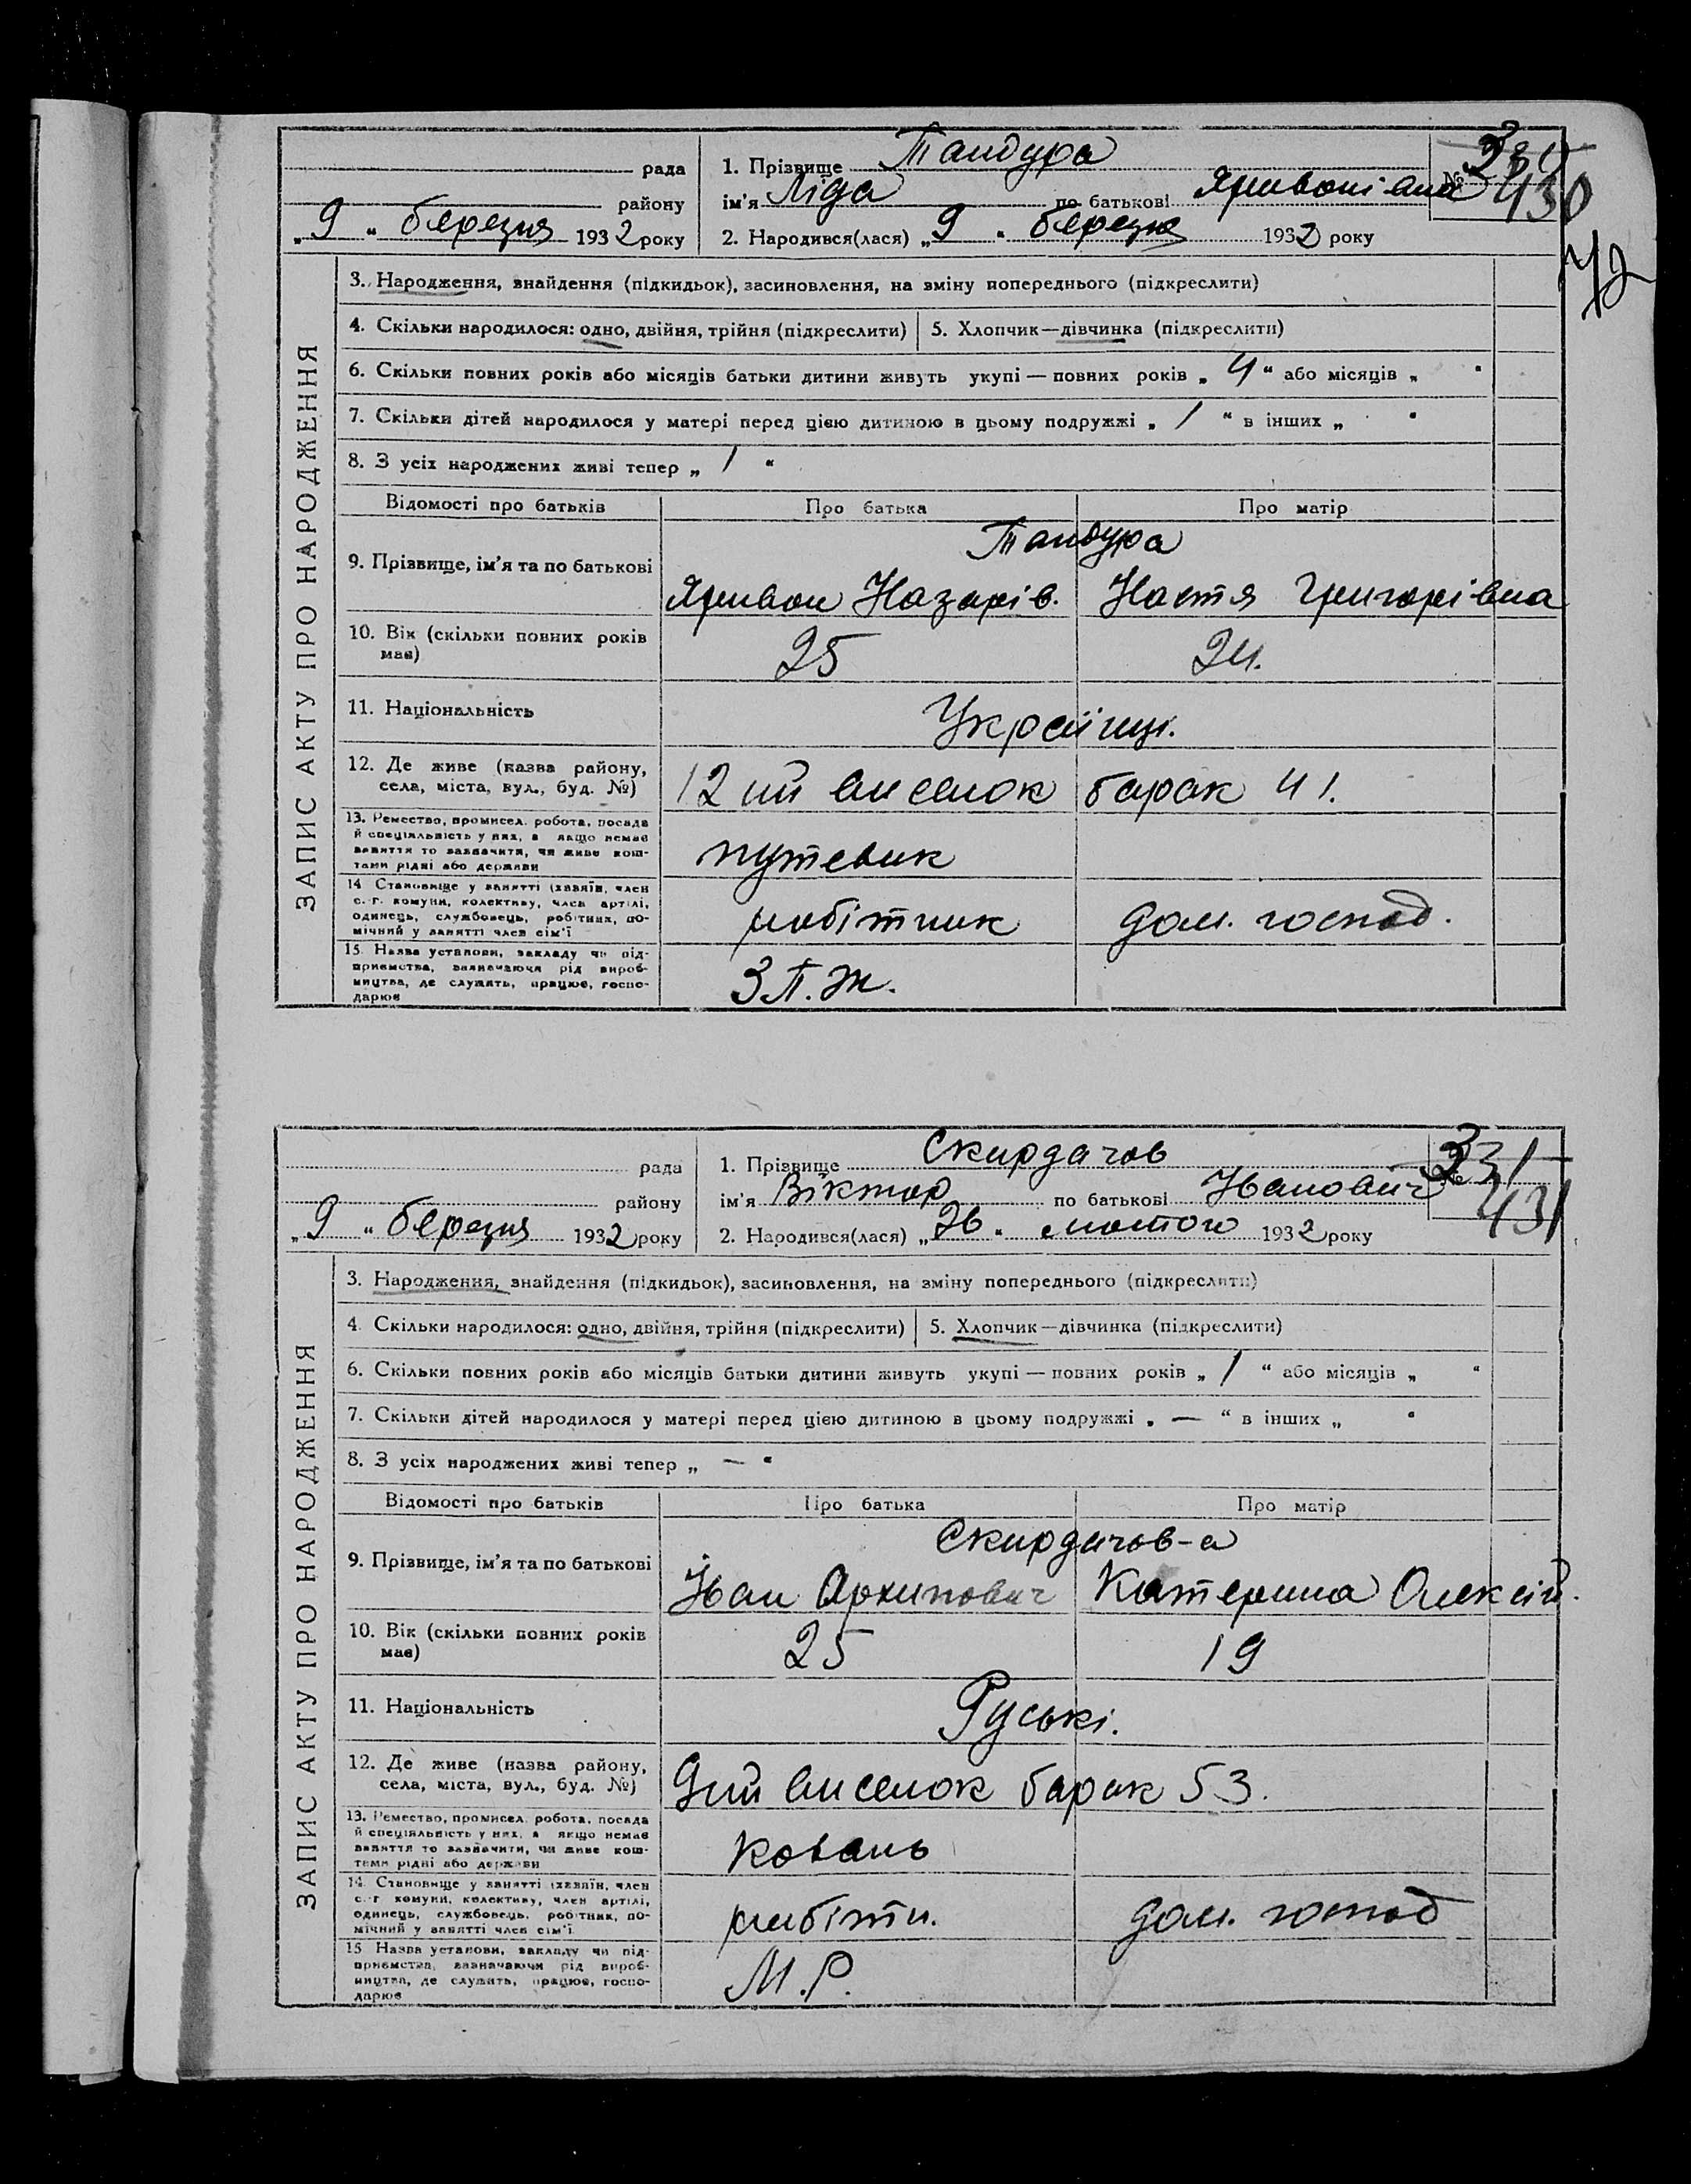 рада
району
„9“ березня 1932 року
1. Прізвище Тандура
ім'я Ліда по батькові Яривонівна
2. Народився(лася) „9“ березня 1932 року
№ 430
42
ЗАПИС АКТУ ПРО НАРОДЖЕННЯ
3. Народження, знайдення (підкидьок), засиновлення, на зміну попереднього (підкреслити)
4. Скільки народилося: одно, двійня, трійня (підкреслити) 5. Хлопчик—дівчинка (підкреслити)
6. Скільки повних років або місяців батьки дитини живуть укупі — повних років „4“ або місяців „ “
7. Скільки дітей народилося у матері перед цією дитиною в цьому подружжі „1“ в інших „ “
8. З усіх народжених живі тепер „1“
Відомості про батьків Про батька Про матір
Тандура
9. Прізвище, ім'я та по батькові Яривон Назарів. Настя Григорівна
10. Вік (скільки повних років має) 25 24.
11. Національність Українці.
12. Де живе (назва району, села, міста, вул., буд. №) 12ий виселок барак 41.
13. Ремество, промисел, робота, посада
й спеціяльність у них, а якщо немає
заняття то зазначити, чи живе кош-
тами рідні або держави путевик
14. Становище у занятті (хазяїн, член
с.-г. комуни, колективу, член артілі,
одинець, службовець, робітник, по-
мічний у занятті член сім'ї робітник дом. господ.
15. Назва установи, закладу чи під-
приємства, зазначаючи рід вироб-
ництва, де служить, працює, госпо-
дарює З П. Ж.
рада
району
„9“ березня 1932 року
1. Прізвище Скирдачов
ім'я Віктор по батькові Іванович
2. Народився(лася) „26“ лютого 1932 року
331
431
ЗАПИС АКТУ ПРО НАРОДЖЕННЯ
3. Народження, знайдення (підкидьок), засиновлення, на зміну попереднього (підкреслити)
4. Скільки народилося: одно, двійня, трійня (підкреслити) 5. Хлопчик—дівчинка (підкреслити)
6. Скільки повних років або місяців батьки дитини живуть укупі — повних років „1“ або місяців „ “
7. Скільки дітей народилося у матері перед цією дитиною в цьому подружжі „—“ в інших „ “
8. З усіх народжених живі тепер „—“
Відомості про батьків Про батька Про матір
Скирдачов-а
9. Прізвище, ім'я та по батькові Іван Архипович Катерина Олексій.
10. Вік (скільки повних років має) 25 19
11. Національність Руські.
12. Де живе (назва району, села, міста, вул., буд. №) 9ий виселок барак 53.
13. Ремество, промисел, робота, посада
й спеціяльність у них, а якщо немає
заняття то зазначити, чи живе кош-
тами рідні або держави коваль
14. Становище у занятті (хазяїн, член
с.-г. комуни, колективу, член артілі,
одинець, службовець, робітник, по-
мічний у занятті член сім'ї робітн. дом. господ
15. Назва установи, закладу чи під-
приємства, зазначаючи рід вироб-
ництва, де служить, працює, госпо-
дарює М.Р.